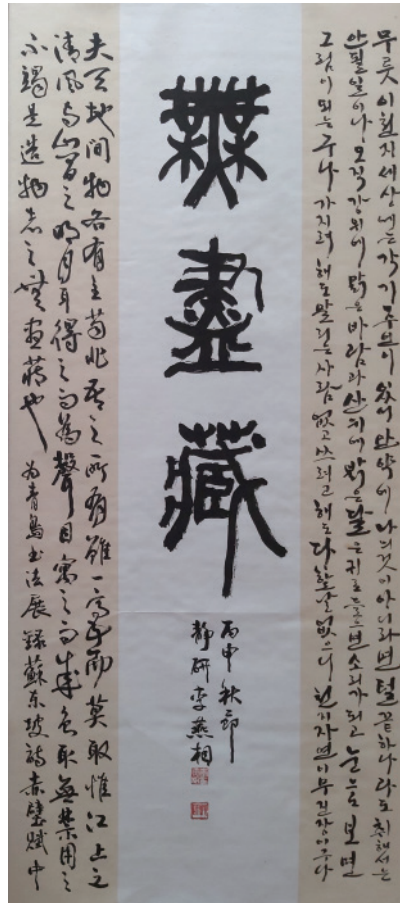 무릇 이 천지 세상에는 각기 주인이 있어 만약에 나의 것이 아니라면 털끝 하나라도 취해서는
안될 일이나 오직 강위에 맑은 바람과 산간에 밝은 달은 귀로 들으면 소리가 되고 눈으로 보면
그림이 되는구나 가지려 해도 말리는 사람 없고 쓰려고 해도 다할 날 없으니 천지자연이 무진장이구나
無盡藏
丙申秋節
靜硏李燕相
夫天地間物各有主苟非吾之所有雖一毫而莫取惟江上之
清風與山間之明月耳得之而為聲目寓之而成色取無禁用之
不竭是造物者之無盡藏也 為青鳥書法展 錄蘇東坡詩赤壁賦中